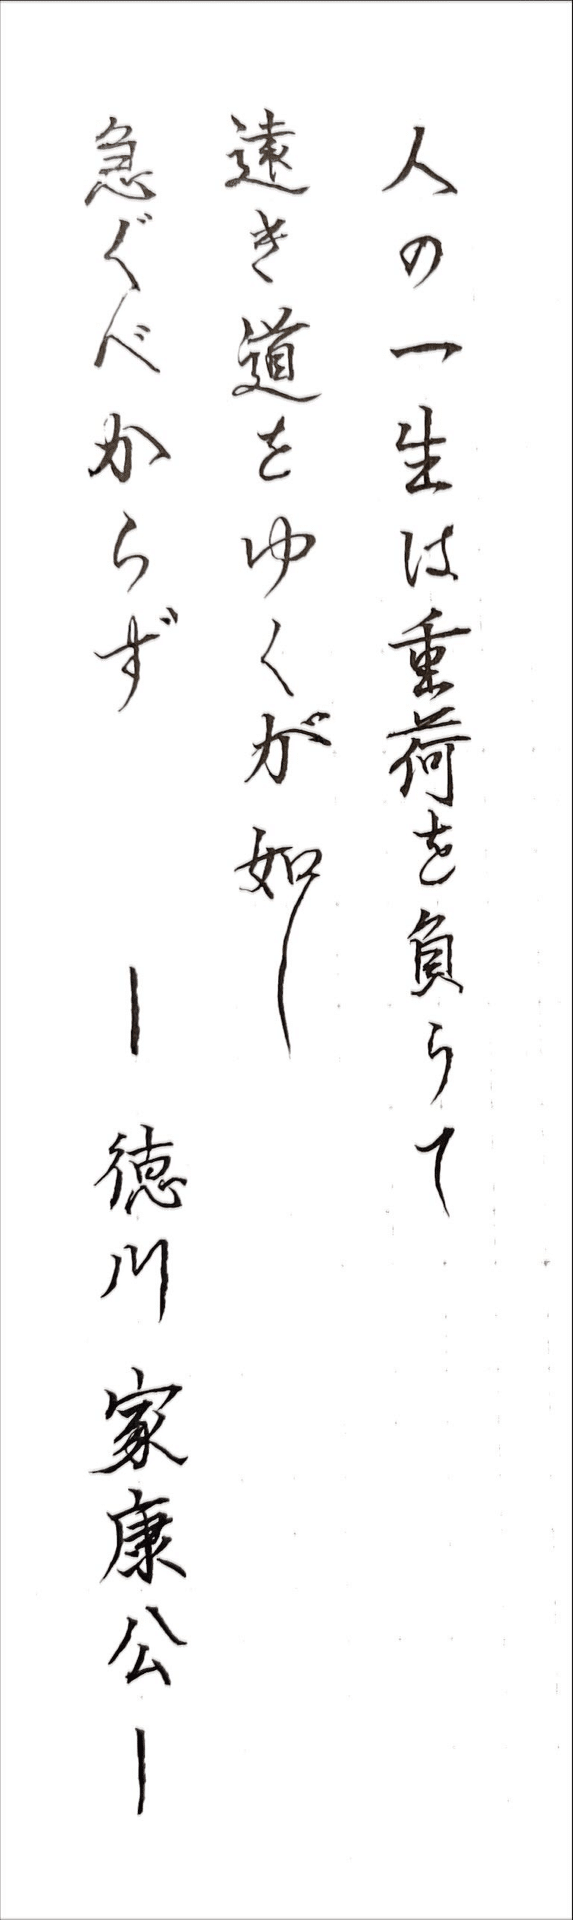 人の一生は重荷を負うて
遠き道をゆくが如し
急ぐべからず ー徳川家康公ー